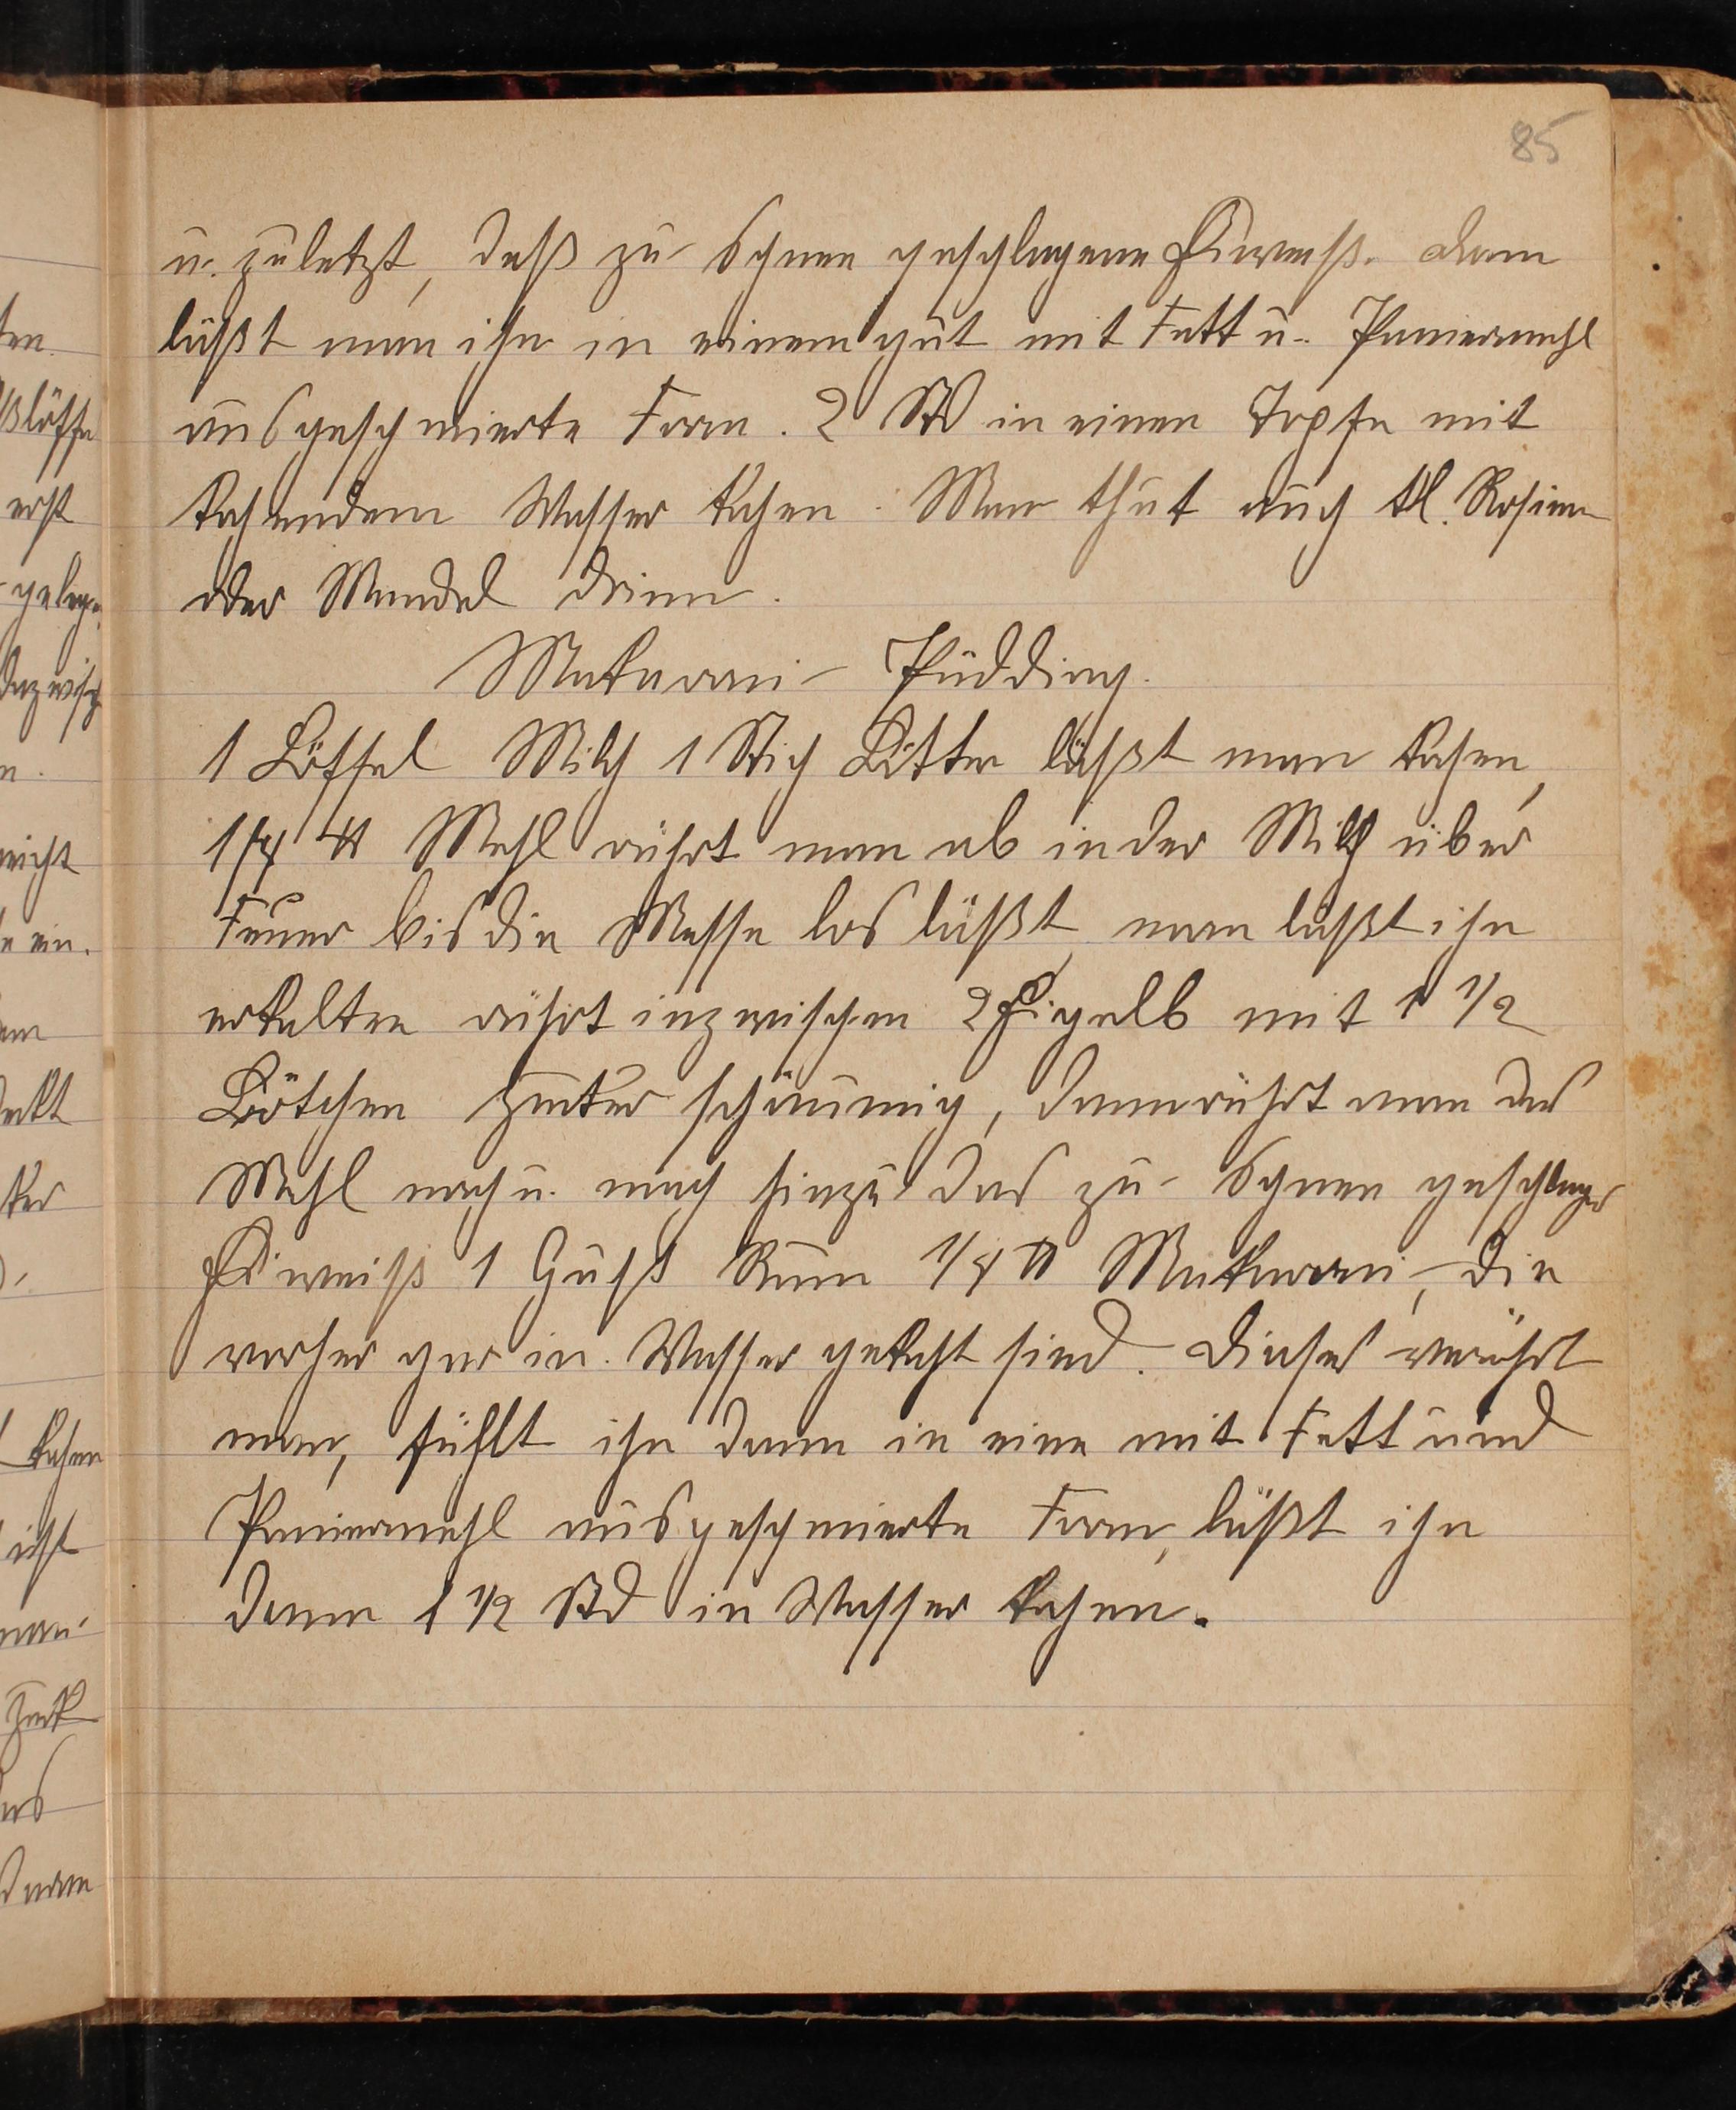 85
u. zuletzt, daß zu Schnee geschlagene Eiweiß. dann
läßt man ihn in einem gut mit Fett u. Paniermehl
ausgeschmierte Form. 2 Std in einen Topfe mit
kochendem Wasser kochen. Man thut auch kl. Rosinen
oder Mandel drinn.
Makaroni- Pudding.
1 Löffel Milch 1 Stich Butter läßt man kochen,
1/4 ℔ Mehl rührt man ab in der Milch über
Feuer bis die Masse los läßt, man läßt ihn
erkalten rührt inzwischen 2 Eigelb mit 1 1/2
Lötchen Zucker schäumig, dann rührt man das
Mehl nach u. nach hinzu das zu Schnee geschlager
Eiweiß 1 Guß Rum 1/4 ℔ Makaroni, die
vorher gar in. Wasser gekocht sind. Dieses verrührt
man, fühlt ihn dann in eine mit Fett und
Paniermehl ausgeschmierte Form, läßt ihn
dann 1 1/2 Std in Wasser kochen.